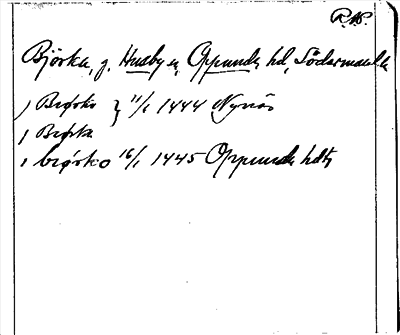 P.W.
Björka, g. Husby sn, Oppunda hd, Södermanl.
, Biørko } 11/1 1444 Nynäs
, Biørka
, biørko 16/1 1445 Oppunda hdts